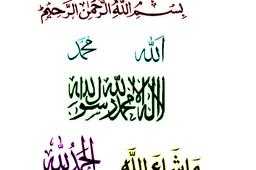 بِسْمِ اللهِ الرَّحْمٰنِ الرَّحِيْمِ
اَللّٰه مُحَمَّد
لا إله إلا الله محمد رسول الله
مَاشَاءَ اللّٰه الحمد لله